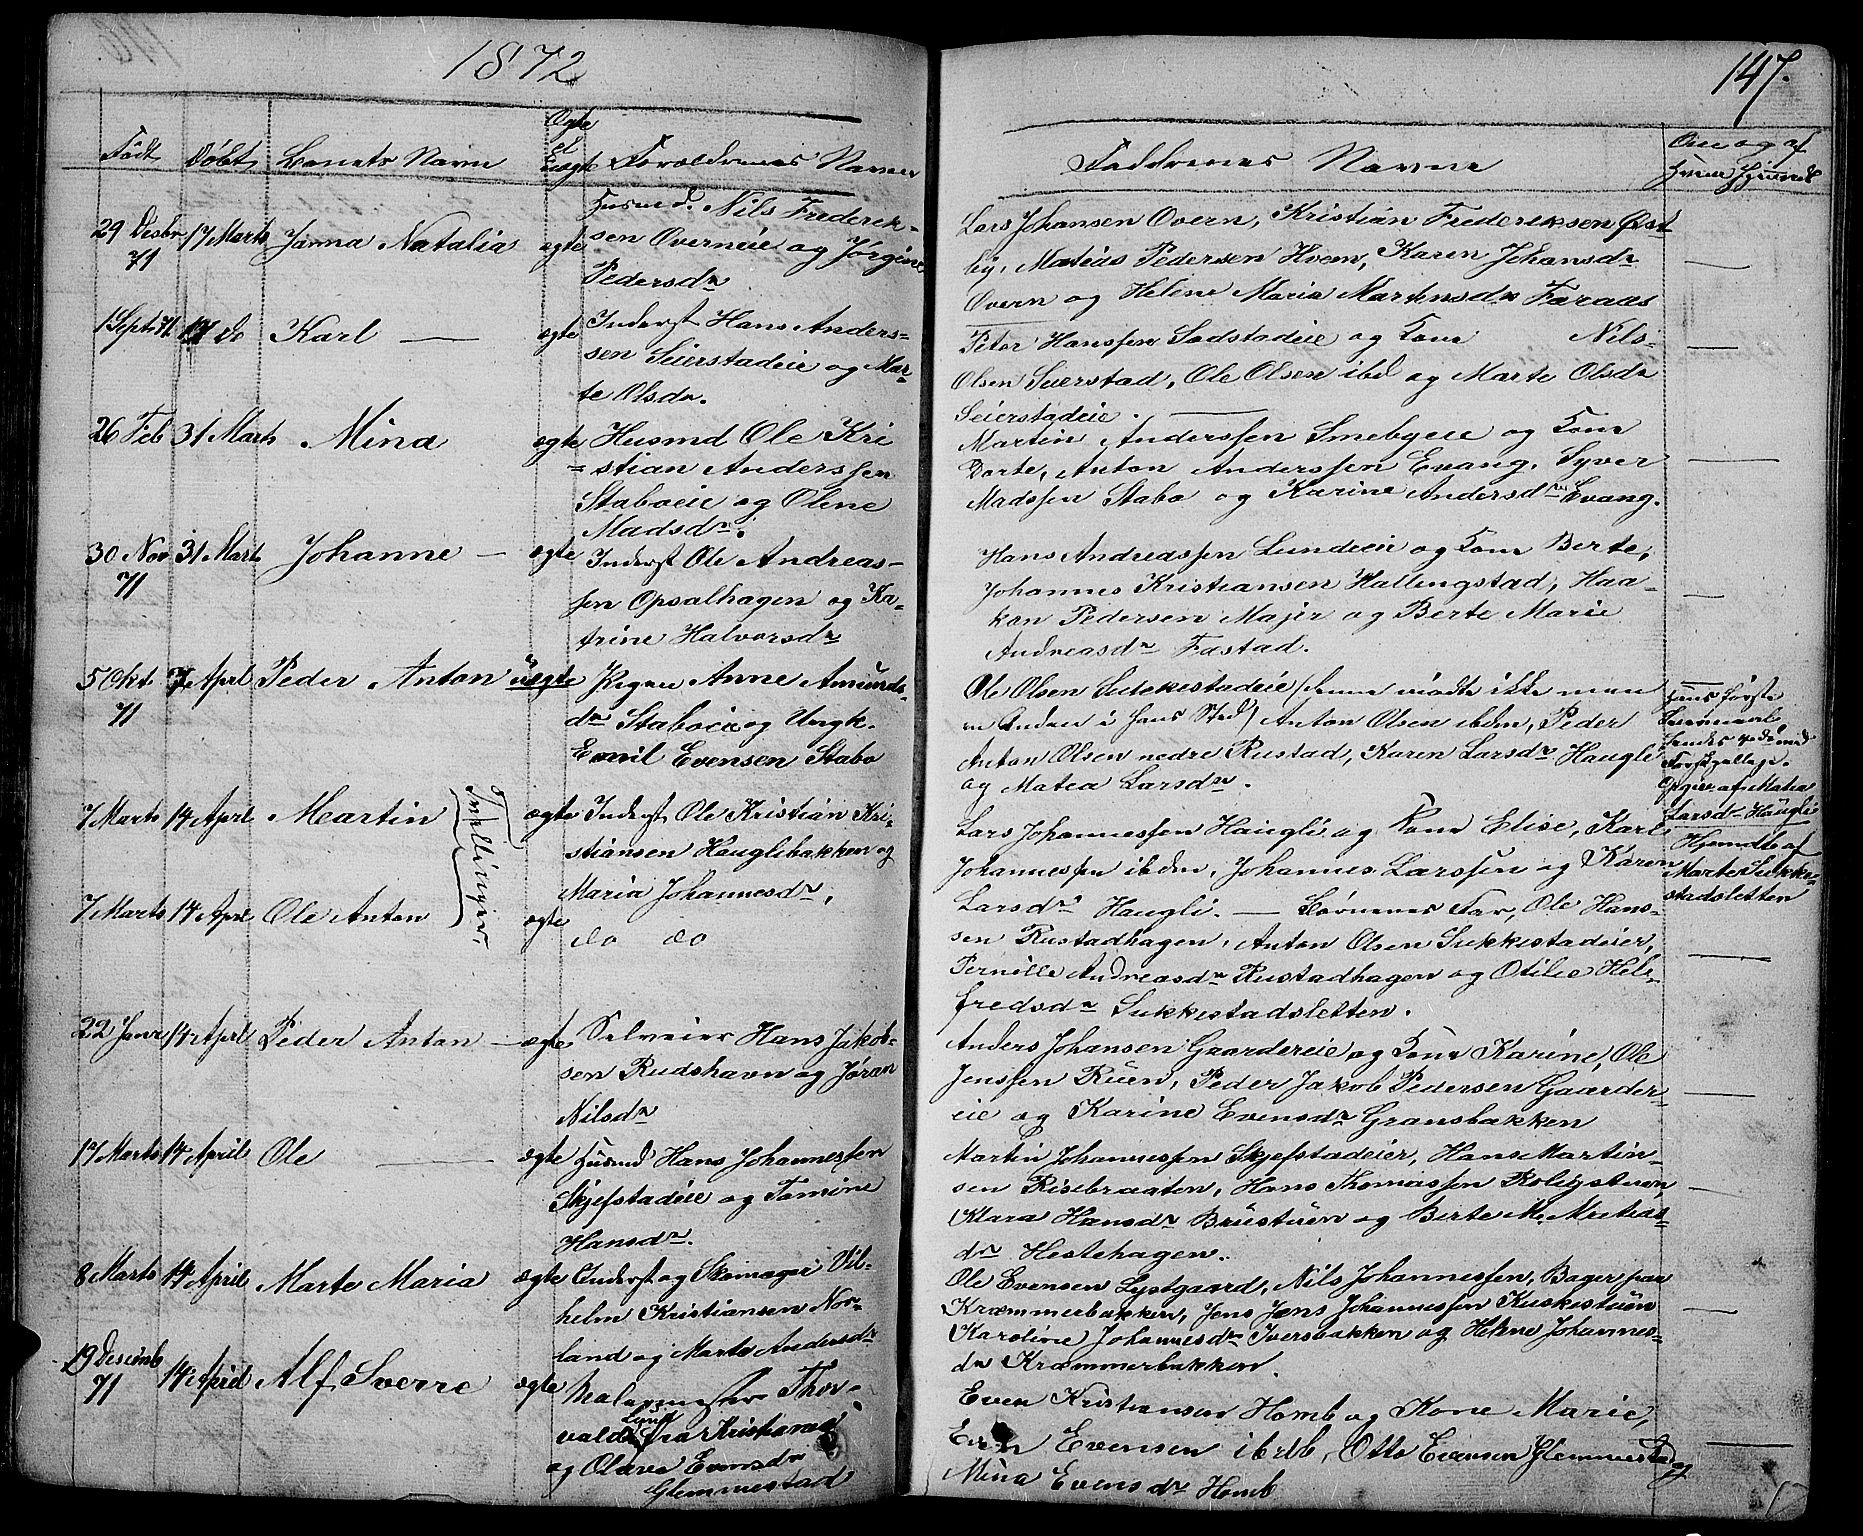 1872
147.
Født Døbt Barnets Navn Ægte el uægte Forældrenes Navne
Faddrenes Navne
Om og af
Hvem Hjemd.
29 Desbr 71 17 Marts Janna Natalia ægte Husmd. Nils Frederik-
sen Overneie og Jørgine
Pedersdr
Lars Johansen Overn, Kristian Frederiksen Øst-
by, Matias Pedersen Hoem, Karen Johansdr
Overn og Helene Maria Martinsdr Faraas
1 Sept 71 17 do Karl — ægte Inderst Hans Anders-
sen Seierstadeie og Mar-
te Olsdr.
Peter Hanssen Sodstadeie og Kone Nils
Olsen Seierstad, Ole Olsen ibd og Marte Olsdr
Seierstadeie. —
26 Feb 31 Marts Mina ægte Husmd Ole Kri
= stian Anderssen
Staboeie og Olene
Madsdr.
Martin Anderssen Smebyeie og Kone
Dorte, Anton Anderssen Evang, Syver
Madssen Stabo og Karine Andersdr Evang.
30 Nov 71 31 Mart Johanne — ægte Inderst Ole Andreas-
sen Opsalhagen og Ka-
trine Halvorsdr
Hans Andreassen Lundeie og Kone Berte,
Johannes Kristiansen Hallingstad, Haa-
kon Pedersen Majer og Berte Marie
Andreasdr Fastad.
5 Okt 71 7 April Peder Anton uægte Pigen Anne Amunds-
dr Staboeie og Ungk.
Emil Evensen Stabo
Ole Olsen Sukkestadeie (denne mødte ikke men
en Anden i hans Sted) Anton Olsen ibdm, Peder
Anton Olsen nedre Rustad, Karen Larsdr Haugli
og Matea Larsdr.
Hans første
Leiermaal
hendes 4de med
Opgiver af Matea
Larsdr Haugli
Hjemdøb af
Marte Sukke-
stadsletten
7 Marts 14 Aprl Martin Tvillinger. ægte Inderst Ole Kristian Kri-
stiansen Hauglibakken og
Maria Johannesdr,
Lars Johannessen Haugli og Kone Elise, Karl
Johannessen ibdm, Johannes Larssen og Karen
Larsdr Haugli. —
7 Marts 14 Aprl Ole Anton ægte do do
Børnenes Far, Ole Hans-
sen Rustadhagen, Anton Olsen Sukkestadeier,
Pernille Andreasdr Rustadhagen og Otilie Hel-
fredsdr Sukkestadsletten.
22 Janr 14 Aprl Peder Anton — ægte Selveier Hans Jakob-
sen Rudshavn og Jøran
Nilsdr
Anders Johansen Gaardereie og Kone Karine, Ole
Jenssen Ruen, Peder Jakob Pedersen Gaarder-
eie og Karine Evensdr Gransbakken
17 Marts 14 April Ole — ægte Husmd Hans Johannessen
Skjefstadeie og Tomine
Hansdr.
Martin Johannessen Skjefstadeier, Hans Martin-
sen Risebraaten, Hans Thomassen Roligstuen,
Klara Hansdr Brustuen og Berte M. Matias-
dr Hestehagen.
8 Marts 14 April Marte Maria ægte Inderst og Skomager Vil-
helm Kristiansen Nor-
land og Marte Andersdr
Ole Evensen Lystgaard, Nils Johannessen, Bager paa
Kræmmerbakken, Jens Jens Johannessen Kuskestuen
Karoline Johannesdr Iversbakken og Helene Johannes-
dr Kræmmerbakken.
19 Desemb 71 14 April Alf Sverre ægte Malermester Thor-
vald Lund fra Kristiania
og Olava Evensdr
Glemmestad
Even Kristiansen Homb og Kone Marie,
Even Evensen ibdb, Otto Evensen Glemmestad og
Mina Evensdr Homb